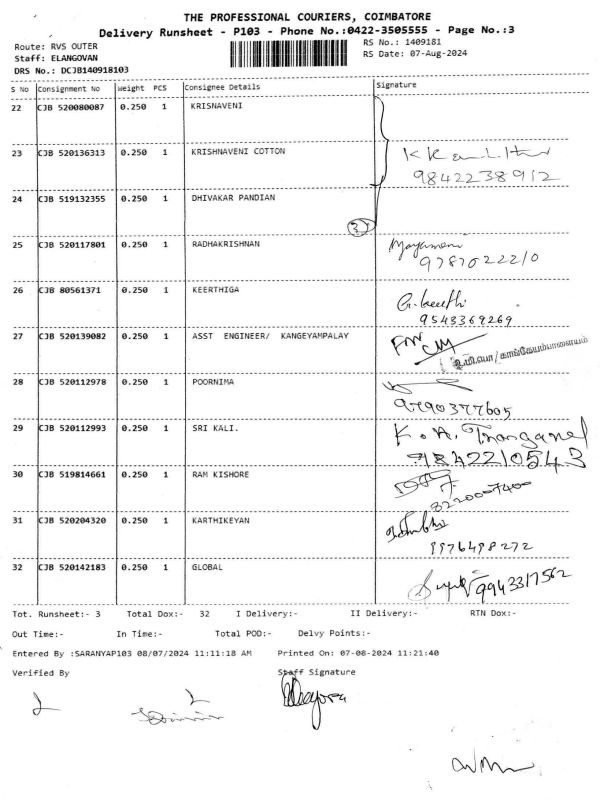 THE PROFESSIONAL COURIERS, COIMBATORE
Delivery Runsheet - P103 - Phone No.:0422-3505555 - Page No.:3
Route: RVS OUTER
RS No.: 1409181
Staff: ELANGOVAN
RS Date: 07-Aug-2024
DRS No.: DCJB140918103
S No Consignment No Weight PCS Consignee Details Signature
22 CJB 520080087 0.250 1 KRISNAVENI
23 CJB 520136313 0.250 1 KRISHNAVENI COTTON
9842238912
24 CJB 519132355 0.250 1 DHIVAKAR PANDIAN
3
25 CJB 520117801 0.250 1 RADHAKRISHNAN
9787022210
26 CJB 80561371 0.250 1 KEERTHIGA
G. keerthi
9543369269
27 CJB 520139082 0.250 1 ASST ENGINEER/ KANGEYAMPALAY
உ.மி.பொ/காங்கேயம்பாளையம்
28 CJB 520112978 0.250 1 POORNIMA
9790377605
29 CJB 520112993 0.250 1 SRI KALI.
9842210543
30 CJB 519814661 0.250 1 RAM KISHORE
82200-7400
31 CJB 520204320 0.250 1 KARTHIKEYAN
9976498272
32 CJB 520142183 0.250 1 GLOBAL
9943317562
Tot. Runsheet:- 3 Total Dox:- 32 I Delivery:- II Delivery:- RTN Dox:-
Out Time:- In Time:- Total POD:- Delvy Points:-
Entered By :SARANYAP103 08/07/2024 11:11:18 AM Printed On: 07-08-2024 11:21:40
Verified By Staff Signature